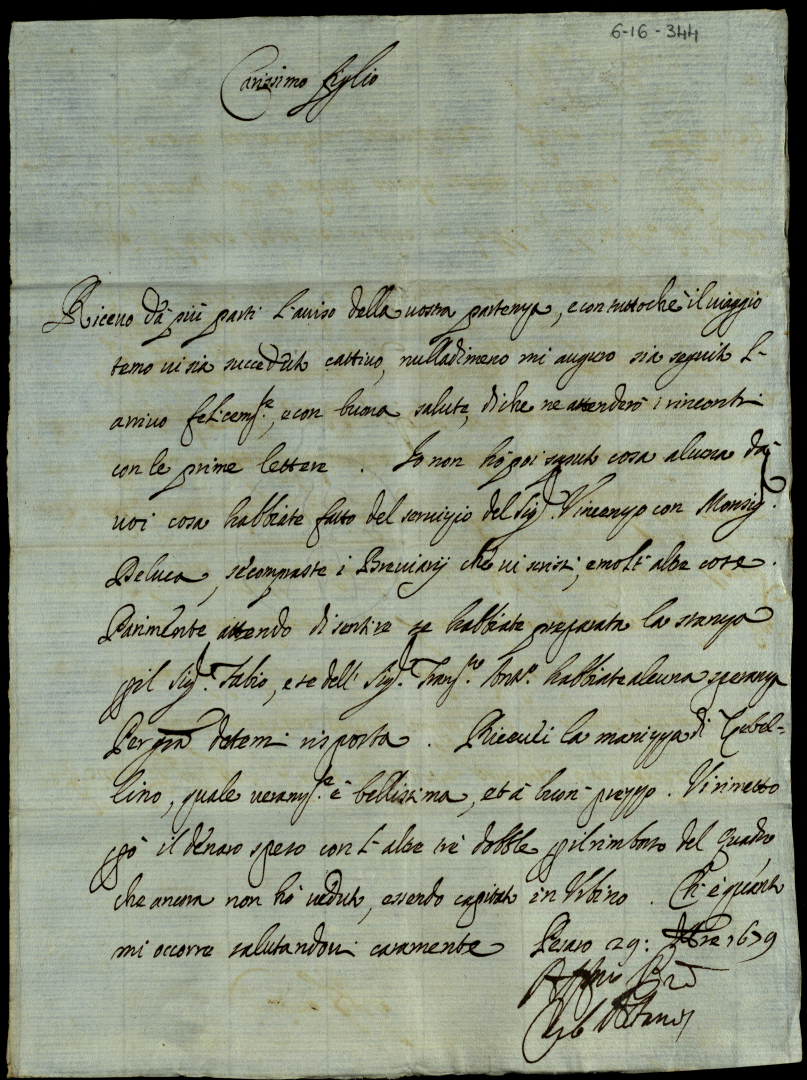 6-16-344
Carissimo figlio
Riceuo dà più parti l'auiso della uostra partenza, e con tuttoche il uiaggio
temo ui sia succeduto cattiuo, nulladimeno mi auguro sia seguito l'
arriuo felicem.te, e con buona salute, di che ne attenderò i rincontri
con le prime lettere. Io non hò poi saputo cosa alcuna dà
uoi cosa habbiate fatto del seruizio del Sig.r Vincenzo con Monsig.r
Deluca, se compraste i Breuiarij che ui scrissi, e molt'altre cose.
Parimente attendo di sentire se habbiate preparata la stanza
p il Sig.r Fabio, e se dell' Sig.r Fran.co habbiate alcuna speranza
Per gra detemi risposta. Riceuei la manizza di Zebel-
lino, quale veram.te è bellissima, et à buon prezzo. Vi rimetto
però il denaro speso con l'altre trè dobble p il rimborso del quadro
che ancora non hò ueduto, essendo capitato in Vrbino. Ch'è quanto
mi occorre salutandoui caramente Pesaro 29: Xbre 1679